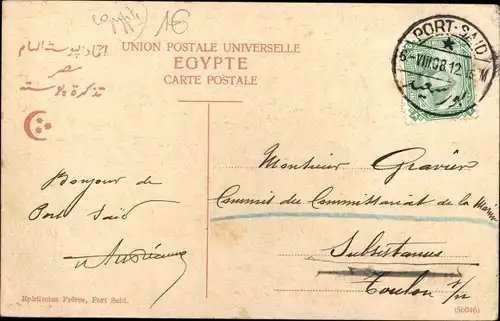 egypte
16
UNION POSTALE UNIVERSELLE
EGYPTE
CARTE POSTALE
اتحاد بوستة العام
مصر
تذكرة بوستة
PORT-SAID
VIII 08 12
بور سعيد
Monsieur Gravier
Commis du Commissariat de la Marine
Subsistances
Toulon s/m
Bonjour de
Port Saïd
Ephtimios Frères, Port Said.
(50046)